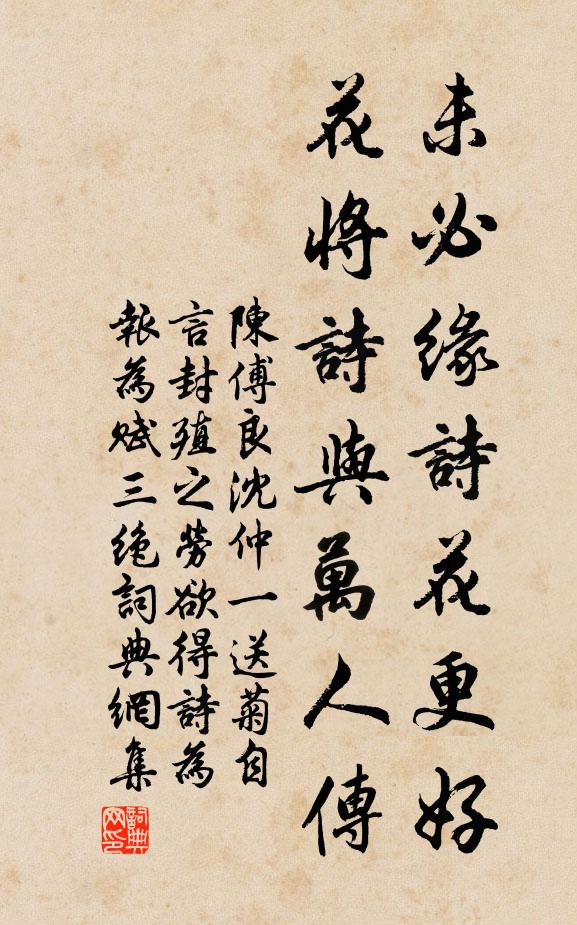 未必緣詩花更好
花將詩與萬人傳
陳傅良沈仲一送菊自
言封殖之勞欲得詩為
報為賦三絶詞典網集
詞典
网印